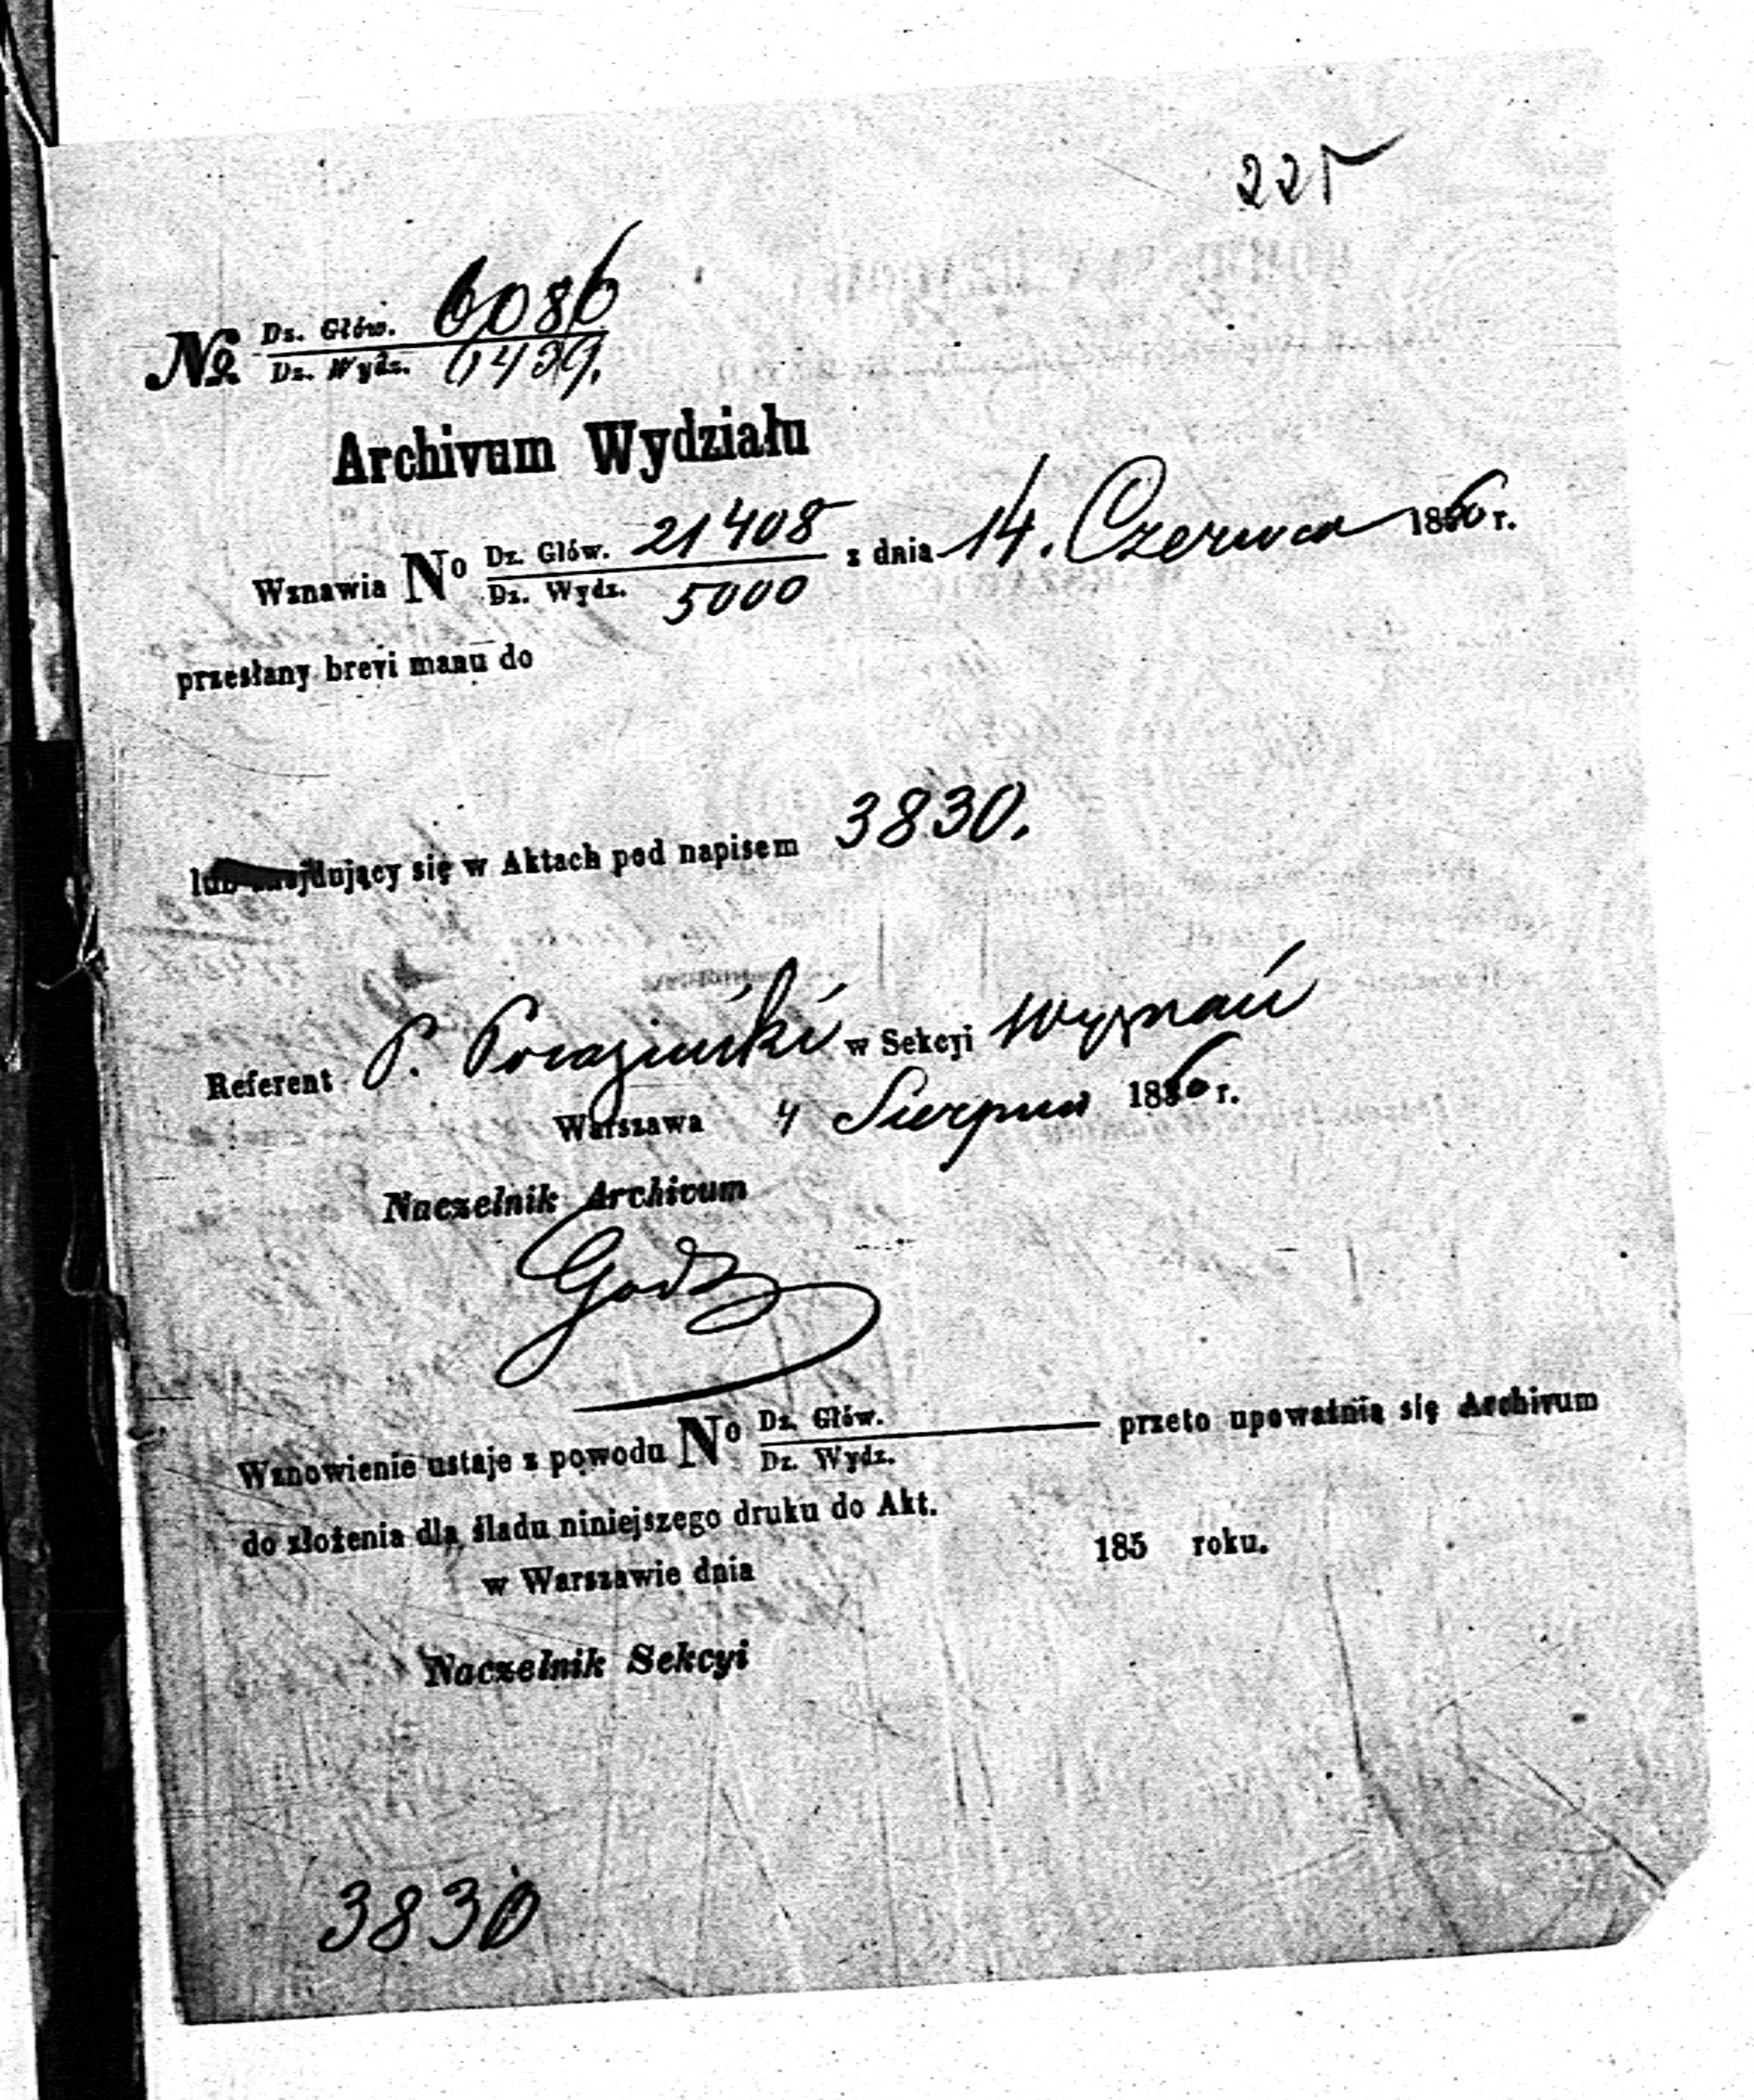 225
№ Dz. Głów. 6086
Dz. Wydz. 6439.
Archivum Wydziału
Wznawia No Dz. Głów. 21408 z dnia 14. Czerwca 1860 r.
Dz. Wydz. 5000
przesłany brevi manu do
lub znajdujący się w Aktach pod napisem 3830.
Referent P. w Sekcyi Wyznań
Warszawa 4 Sierpnia 1860 r.
Naczelnik Archivum
Wznowienie ustaje z powodu No Dz. Głów. przeto upoważnia się Archivum
Dz. Wydz.
do złożenia dla śladu niniejszego druku do Akt.
w Warszawie dnia 185 roku.
Naczelnik Sekcyi
3830